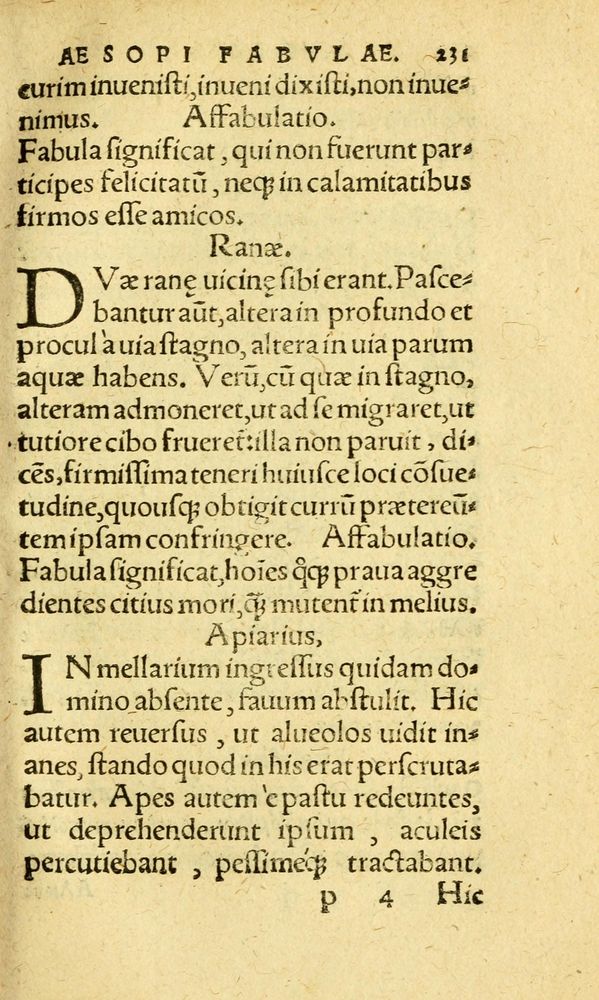 AESOPI FABVLAE. 231
curim inuenisti, inueni dixisti, non inue-
nimus. Affabulatio.
Fabula significat, qui non fuerunt par-
ticipes felicitatū, neq; in calamitatibus
firmos esse amicos.
Ranæ.
DVæ ranę uicinę sibi erant. Pasce-
bantur aūt, altera in profundo et
procul à uia stagno, altera in uia parum
aquæ habens. Verū, cū quæ in stagno,
alteram admoneret, ut ad se migraret, ut
tutiore cibo frueret: illa non paruit, di-
cēs, firmissima teneri huiusce loci cōsue-
tudine, quousq; obtigit currū prætereū-
tem ipsam confringere. Affabulatio.
Fabula significat, hoīes q̊q; praua aggre
dientes citius mori, q̄; mutent in melius.
Apiarius,
IN mellarium ingressus quidam do-
mino absente, fauum abstulit. Hic
autem reuersus, ut alueolos uidit in-
anes, stando quod in his erat perscruta-
batur. Apes autem è pastu redeuntes,
ut deprehenderunt ipsum, aculeis
percutiebant, pessimeq́; tractabant.
p 4 Hic